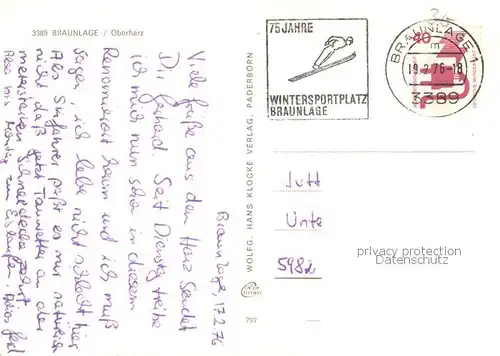 3389 BRAUNLAGE / Oberharz
75 JAHRE
WINTERSPORTPLATZ
BRAUNLAGE
BRAUNLAGE 1
m
19.2.76-18
3389
40
Braunlage, 17.2.76
Viele Grüße aus dem Harz sendet
Dir Gerhard. Seit Dienstag treibe
ich mich nun schon in diesem
Renommierort herum und ich muß
sagen, ich lebe nicht schlecht hier
Als Skifahrer paßt es mir natürlich
nicht daß jetzt Tauwetter an der
meterstarken Schneedecke zehrt
Also bis Montag zum Eislaufen,
WOLFG. HANS KLOCKE VERLAG, PADERBORN
797
Jutt
Unte
5982
privacy protection
Datenschutz